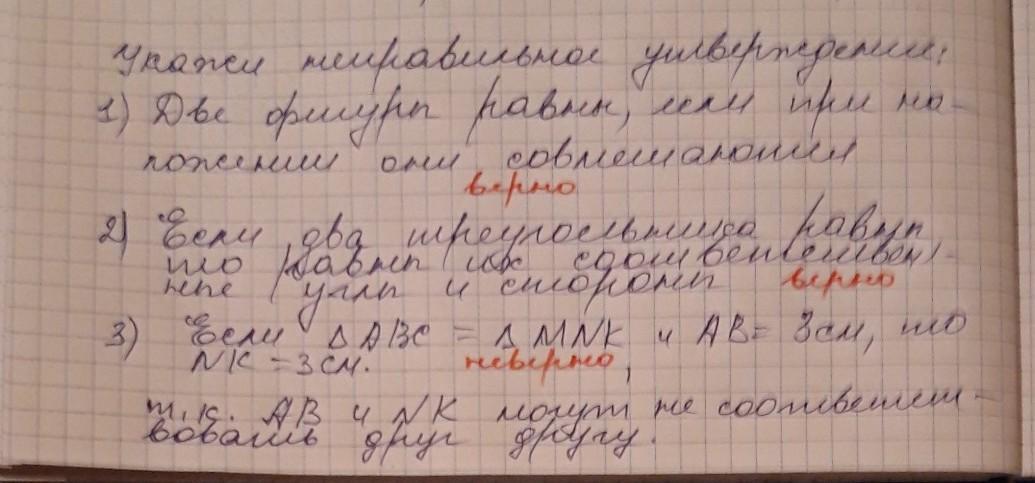 Укажи неправильное утверждение:
1) Две фигуры равны, если при на-
ложении они совмещаются
верно
2) Если два треугольника равны,
то равны их соответствен-
ные углы и стороны верно
3) Если Δ ABC = Δ MNK и AB = 3см, то
NK = 3см. неверно,
т.к. AB и NK могут не соответст-
вовать друг другу.